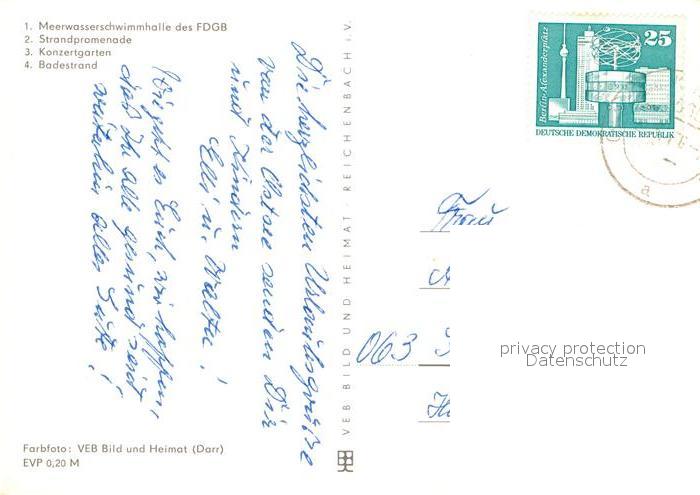 1. Meerwasserschwimmhalle des FDGB
2. Strandpromenade
3. Konzertgarten
4. Badestrand
Die herzlichsten Urlaubsgrüße
von der Ostsee senden Dir
und Kindern
Elli u. Walter!
Wie geht es Euch, wir hoffen,
daß Ihr alle gesund seid
weiterhin alles Gute!
VEB BILD UND HEIMAT · REICHENBACH i. V.
Berlin-Alexanderplatz
25
DEUTSCHE DEMOKRATISCHE REPUBLIK
a
Frau
063
privacy protection
Datenschutz
Farbfoto: VEB Bild und Heimat (Darr)
EVP 0,20 M